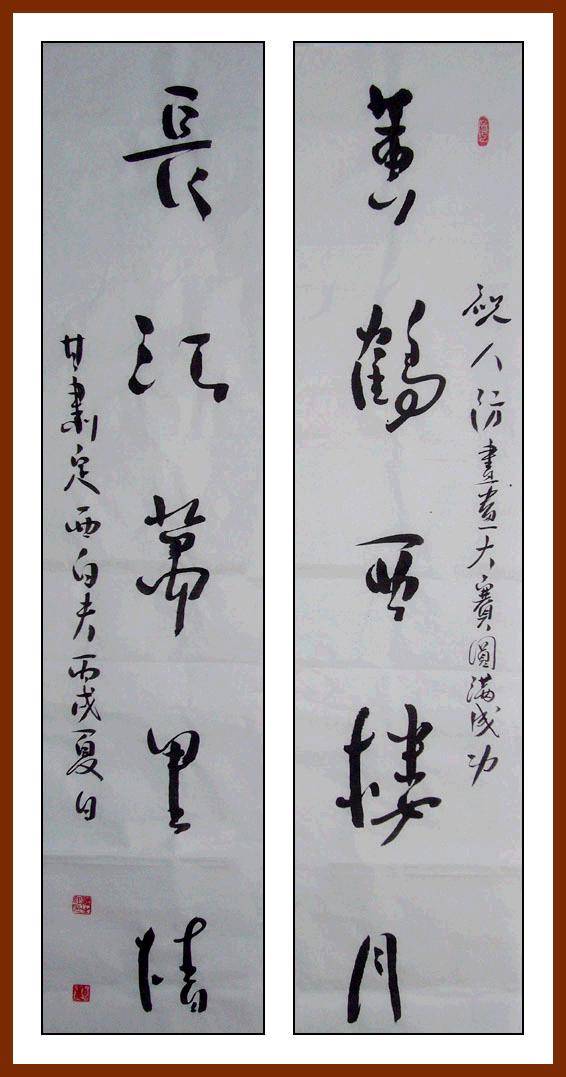 祝人防書畫大賽圓滿成功
黃鶴西樓月
長江萬里情
甘肅定西白夫丙戌夏日